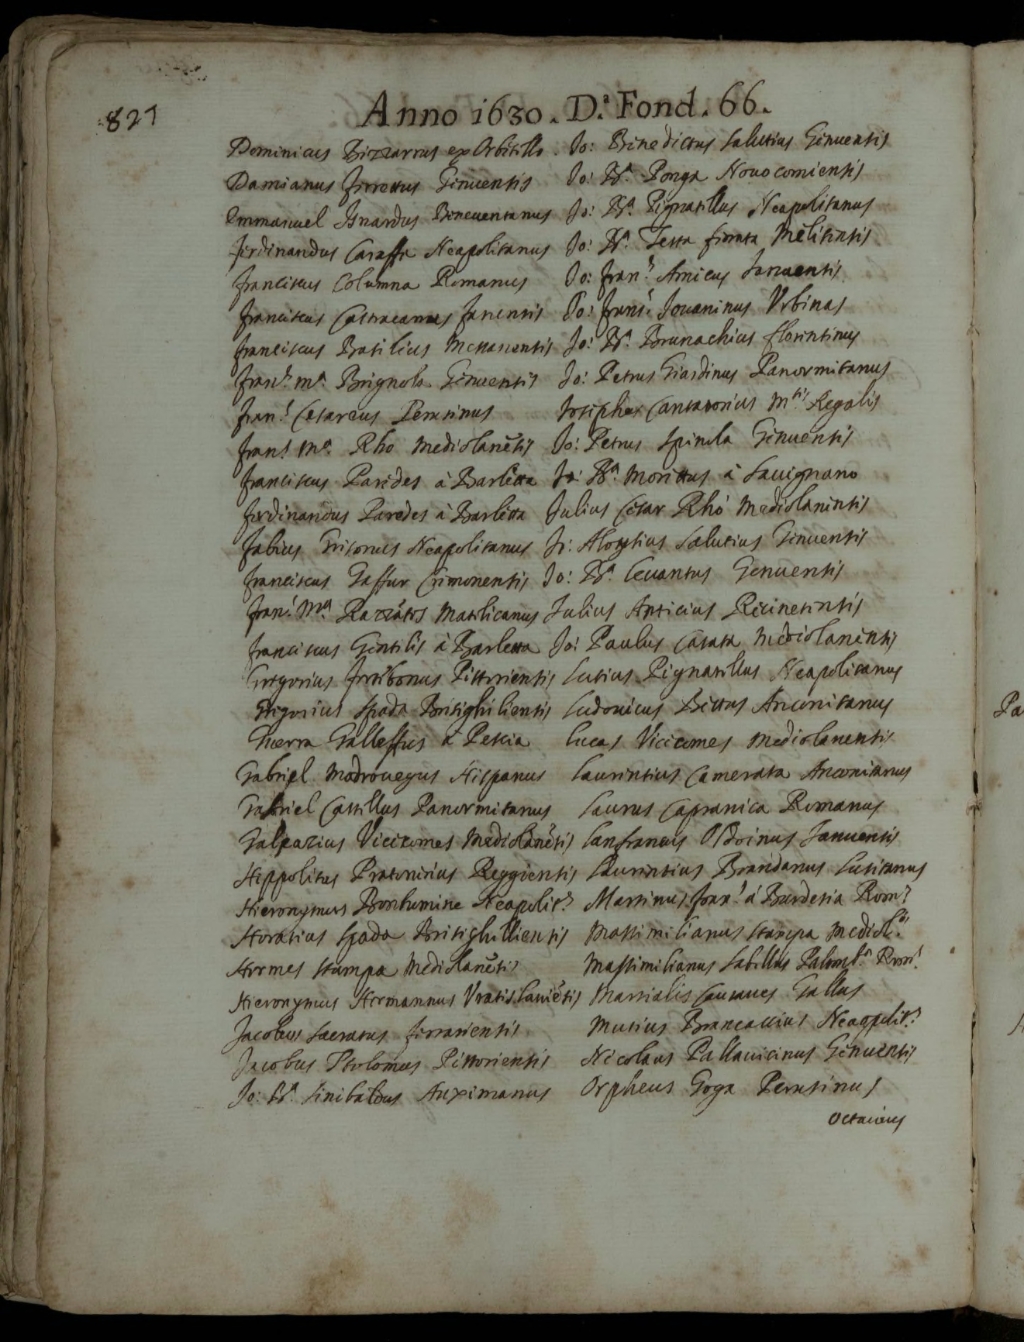 827
Anno 1630. D.ª Fond. 66.
Dominicus Bizzarrus ex Orbitello
Damianus Ferrettus Genuensis
Emmanuel Isnardus Beneventanus
Ferdinandus Caraffa Neapolitanus
Franciscus Columna Romanus
Franciscus Castracanius Fanensis
Franciscus Basilius
Fran.s M.a Brignole Genuensis
Fran.s Cesareus Perusinus
Fran.s M.a Rho Mediolanẽsis
Franciscus Parides à Barletta
Ferdinandus Paredes à Barletta
Fabius Grisonus Neapolitanus
Franciscus Gaffur Cremonensis
Fran.s M.a Matilicanus
Franciscus Gentilis à Barletta
Gregorius Fortibonus Pistoriensis
Gregorius Spada Brisighiliensis
Guerra Galleffus à Pescia
Gabriel Hispanus
Gabriel Castillus Panormitanus
Galeazius Vicecomes Mediolanẽsis
Hippolitus Pratonerius Reggiensis
Hieronymus Neapolit.s
Horatius Spada Brisighilliensis
Hermes Stampa Mediolanẽsis
Hieronymus Hermannus Vratislaviẽsis
Jacobus Sacratus Ferrariensis
Jacobus Ptolomus Pistoriensis
Jo: B.a Sinibaldus Auximanus
Jo: Benedictus Salutius Genuensis
Jo: B.a Ponga Novocomiensis
Jo: B.a Pignatillus Neapolitanus
Jo: B.a Testa Melitensis
Jo: Fran.s Amicus Januensis
Jo: Frans.s Jovaninus Urbinas
Jo: B.a Brunachius Florentinus
Jo: Petrus Giardinus Panormitanus
Josephus Cantatorius M.tis Regalis
Jo: Petrus Spinula Genuensis
Jo: B.a Morittus à Savignano
Julius Cesar Rhò Mediolanensis
Jo: Aloysius Salutius Genuensis
Jo: B.a Cevantus Genuensis
Julius Anticius Recinetensis
Jo: Paulus Casata Mediolanensis
Lutius Pignatillus Neapolitanus
Ludovicus Bittus Anconitanus
Lucas Vicecomes Mediolanensis
Laurentius Camerata Anconitanus
Laurus Capranica Romanus
Lanfrancus Oldoinus Januensis
Laurentius Brandanus Lusitanus
Martinus Fran.s à Burdesia Rom.s
Massimilianus Stampa Mediol.sis
Massimilianus Sabellus Palomb.a Rom.s
Martialis Gallus
Mutius Brancaccius Neapolit.s
Nicolaus Pallavicinus Genuensis
Orpheus Goga Perusinus
Octavius